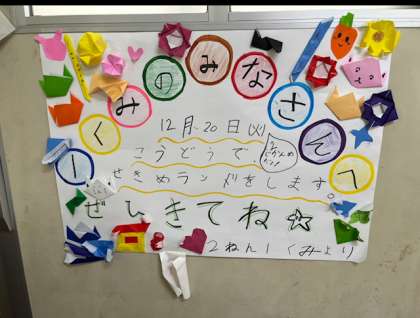 1くみのみなさんへ
12月20日(火)
こうどうで、
せきめランドをします。
ぜひきてね☆
2ねん1くみより